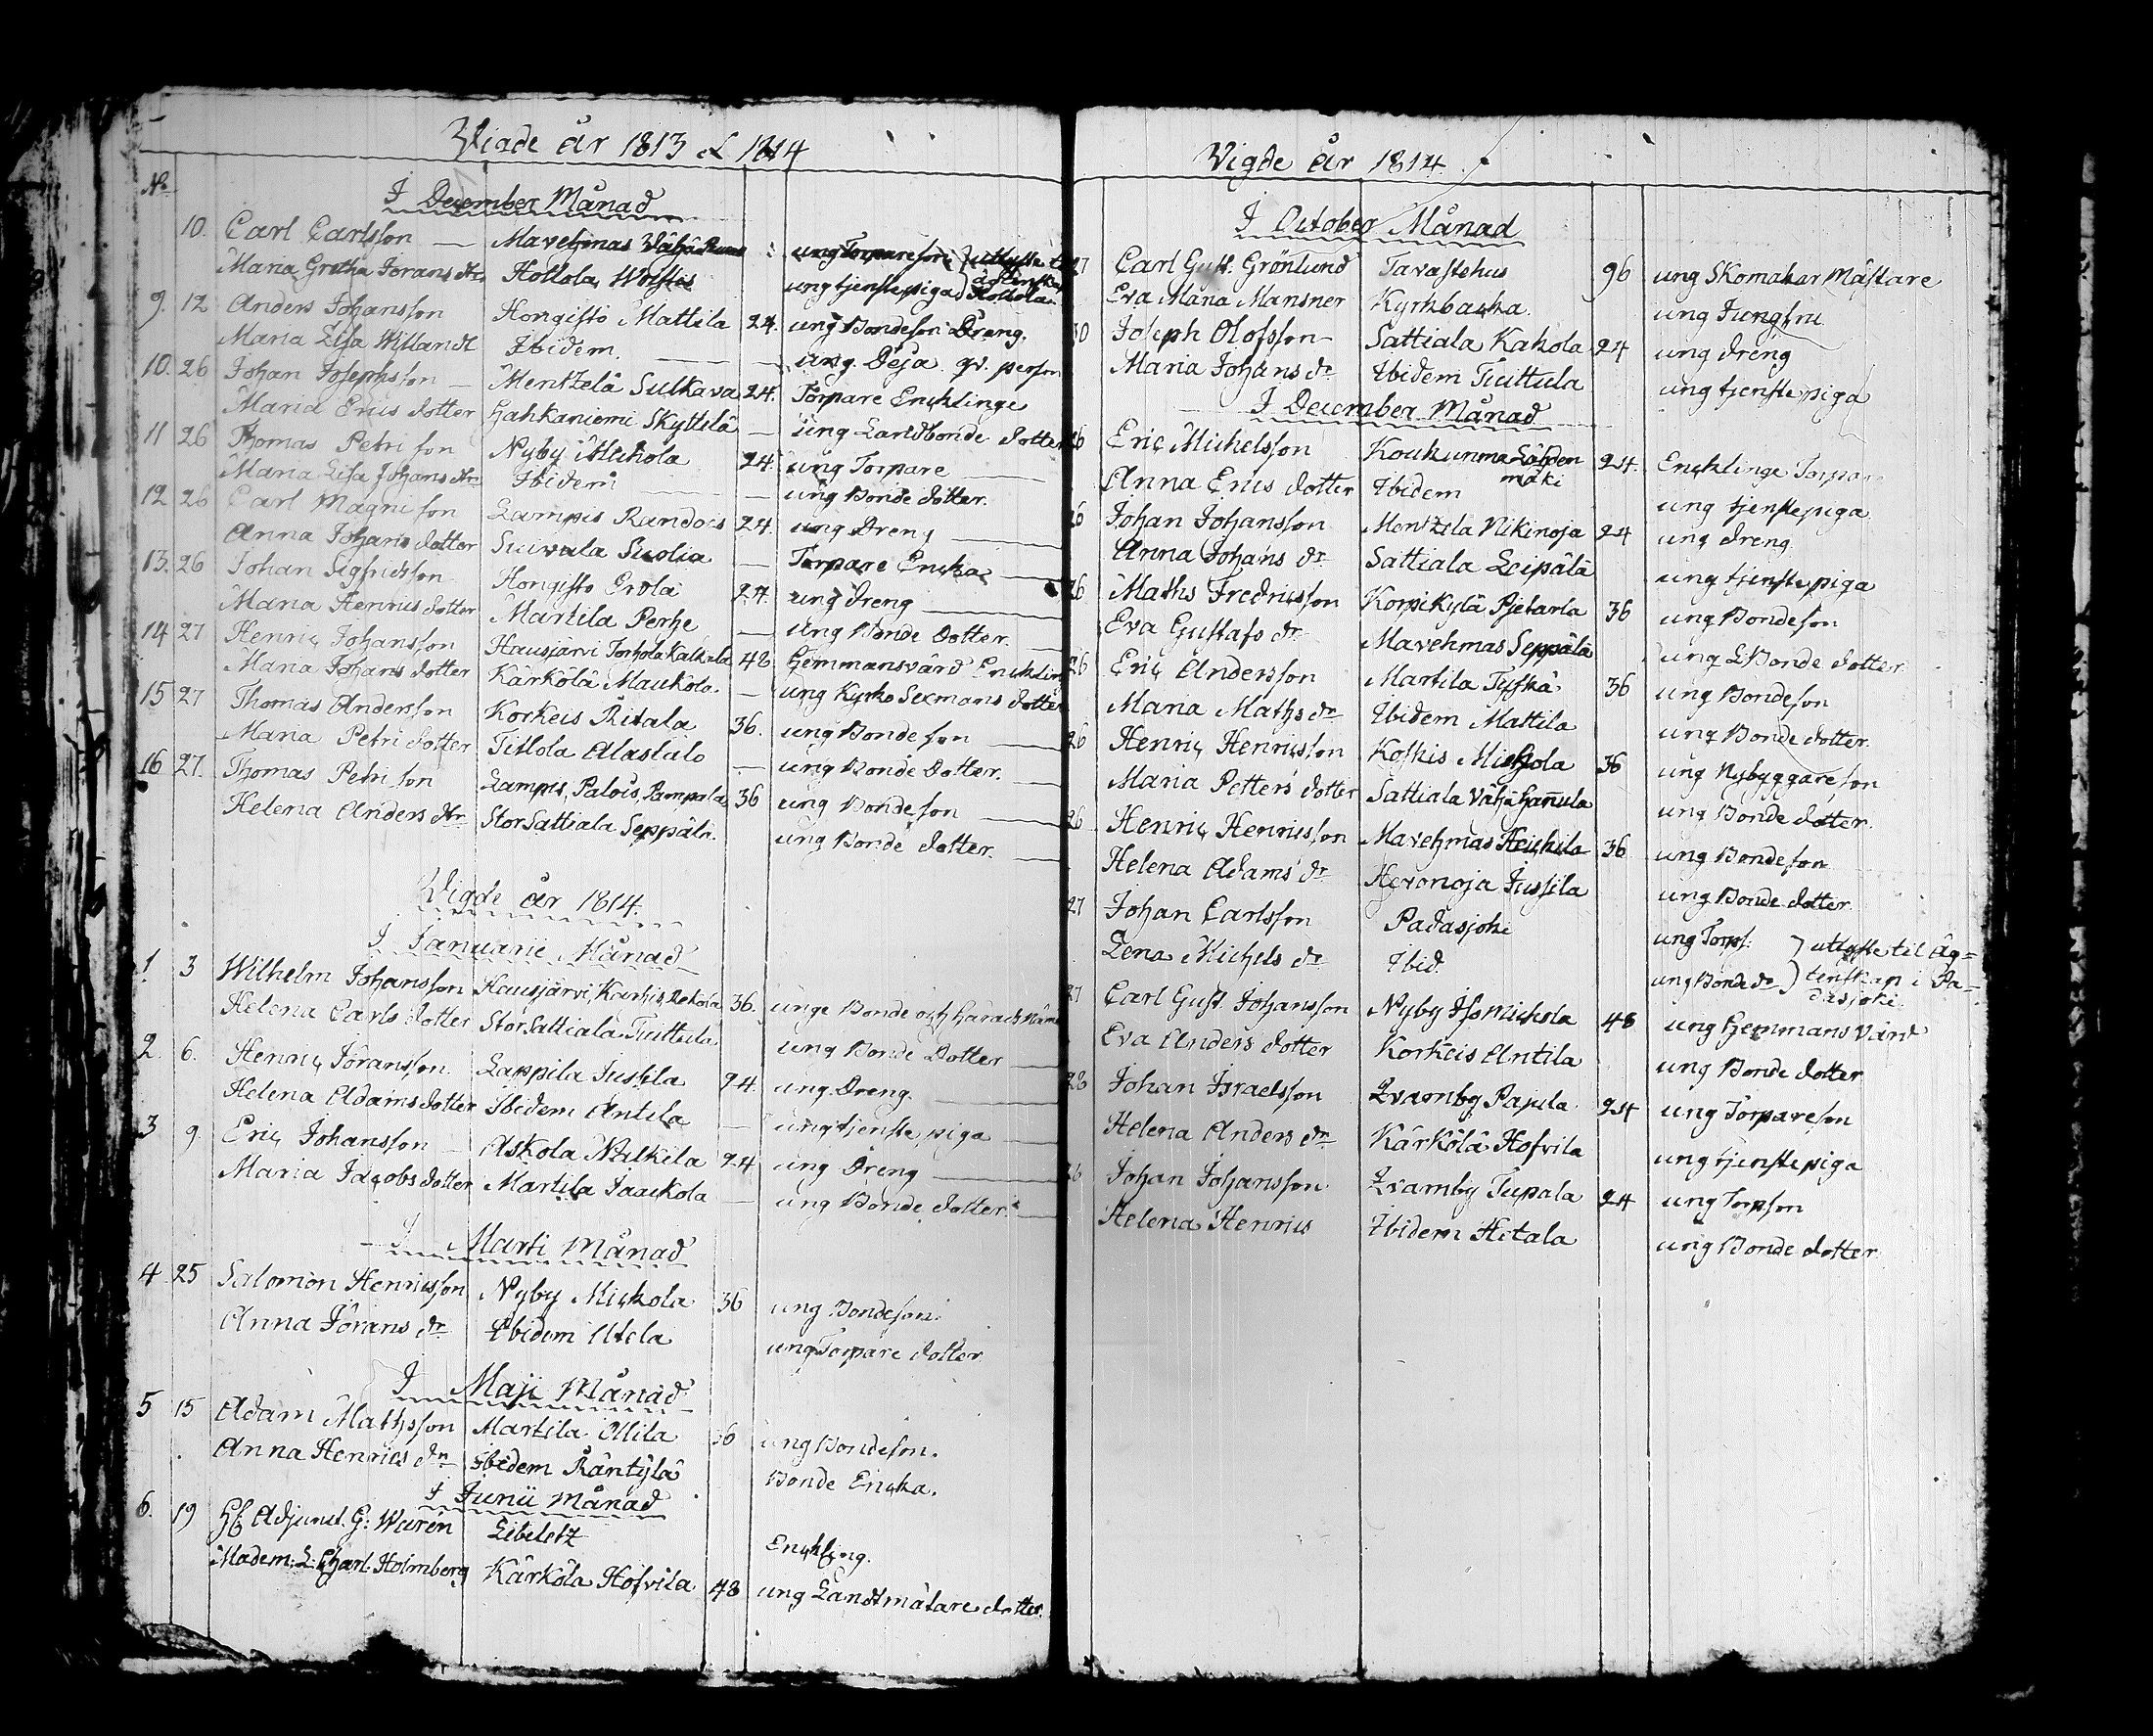 Vigde år 1813 & 1814
No
I December Månad
10. Carl Carlsson — Mavehmas Vähä ung Torpareson uttyste
Maria Gretha Jörans dr Hollola ung tjenstepiga
9. 12 Anders Johansson Hongisto Mattila 24. ung Bondeson Dreng.
Maria Lisa Willandt Ibidem. — ung Deja qv. person
10. 26 Johan Josephsson — Mentzelä Sulkava 24. Torpare Enklinge
Maria Erics dotter Hahkaniemi Skyttilä — ung Landbonde dotter
11 26 Thomas Petri son Nyby Michola 24. ung Torpare
Maria Lisa Johans dr Ibidem — ung Bonde dotter.
12 26 Carl Magni son Lampis Randois 24. ung Dreng
Anna Johans dotter Suivala Suolia — Torpare Encka
13. 26 Johan Sigfridsson Hongisto Erola 24. ung dreng
Maria Henrics dotter Martila Perhe — ung Bonde Dotter.
14 27 Henric Johansson Hausjärvi Torhola Kalkala 48 Hemmansvärd Encklin
Maria Johans dotter Kärkölä Maukola. — ung Kyrko Sexmans dotter
15 27 Thomas Andersson Korkeis Ritala 36. ung Bonde son
Maria Petri dotter Titlola Alastalo — ung Bonde Dotter.
16 27. Thomas Petri son Lampis, Palois, Pampala 36 ung Bonde son
Helena Anders dr Stor Sattiala Seppälä. ung Bonde dotter.
Vigde år 1814.
I Januarii Månad
1 3 Wilhelm Johansson Hausjärvi, Karhis, Rekola 36. unge Bonde och Härads
Helena Carls dotter Stor Sattiala Tuittula ung Bonde Dotter
2. 6. Henric Jöransson. Lappila Jussila 24. ung Dreng.
Helena Adams dotter Ibidem Antila — ung tjenste piga
3 9. Eric Johansson — Askola Nulkila 24 ung Dreng
Maria Jacobs dotter Martila Jaackola — ung Bonde dotter.
I Marti Månad
4 25 Salomon Henricsson Nyby Mickola 36 ung Bondeson.
Anna Jörans dr Ibidem Utela ung Torpare dotter.
I Maji Månad
5 15 Adam Mathsson Martila Ollila 36 ung Bondeson.
Anna Henrics dr Ibidem Räntylä Bonde Encka.
I Junii Månad
6. 19 Adjunct. G: Warén Libeletz Enckling.
Madem: L: Charl: Holmberg Kärkölä Hofvila 48 ung Landtmätare dotter.
Vigde år 1814.
I October Månad
27 Carl Gust. Grönlund Tavastehus 96 ung Skomakar Mästare
Eva Maria Mansner Kyrkbacka. ung Jungfru
30 Joseph Olofsson Sattiala Kakola 24 ung dreng
Maria Johans dr Ibidem Tuittula ung tjenstepiga
I December Månad
26 Eric Michelsson Koukunma Lähden mäki 24. Encklinge Torpare
Anna Erics dotter Ibidem ung tjenstepiga
26 Johan Johansson Mentzela Nikinoja 24 ung dreng.
Anna Johans dr Sattiala Leipälä ung tjenstepiga
26 Maths Fredricsson Korpikylä Pjetarla 36 ung Bondeson
Eva Gustafs dr Mavehmas Seppälä ung L Bonde dotter.
26 Eric Andersson Martila Tyskä 36 ung Bondeson
Maria Maths dr Ibidem Mattila ung Bonde dotter.
26 Henric Henricsson Koskis Michola 36 ung Nybyggareson
Maria Petters dotter Sattiala Vähä Hannula ung Bonde dotter.
26 Henric Henricsson Mavehmas Heickila 36 ung Bondeson
Helena Adams dr Hevonoja Jussila ung Bonde dotter.
27 Johan Carlsson Padasjoki ung Torps: uttyste til äg=
Lena Michels dr Ibid. ung Bonde dr tenskap i Pa=
dasjoki
27 Carl Gust. Johansson Nyby Iso Michola 48 ung Hemmans Värd
Eva Anders dotter Korkeis Antila ung Bonde dotter
28 Johan Israelsson Evamby Pajula 24 ung Torpareson
Helena Anders dr Kärkölä Hofvila ung tjenstepiga
26 Johan Johansson Evamby Tupala 24 ung Torpson
Helena Henrics Ibidem Hetala ung Bonde dotter.